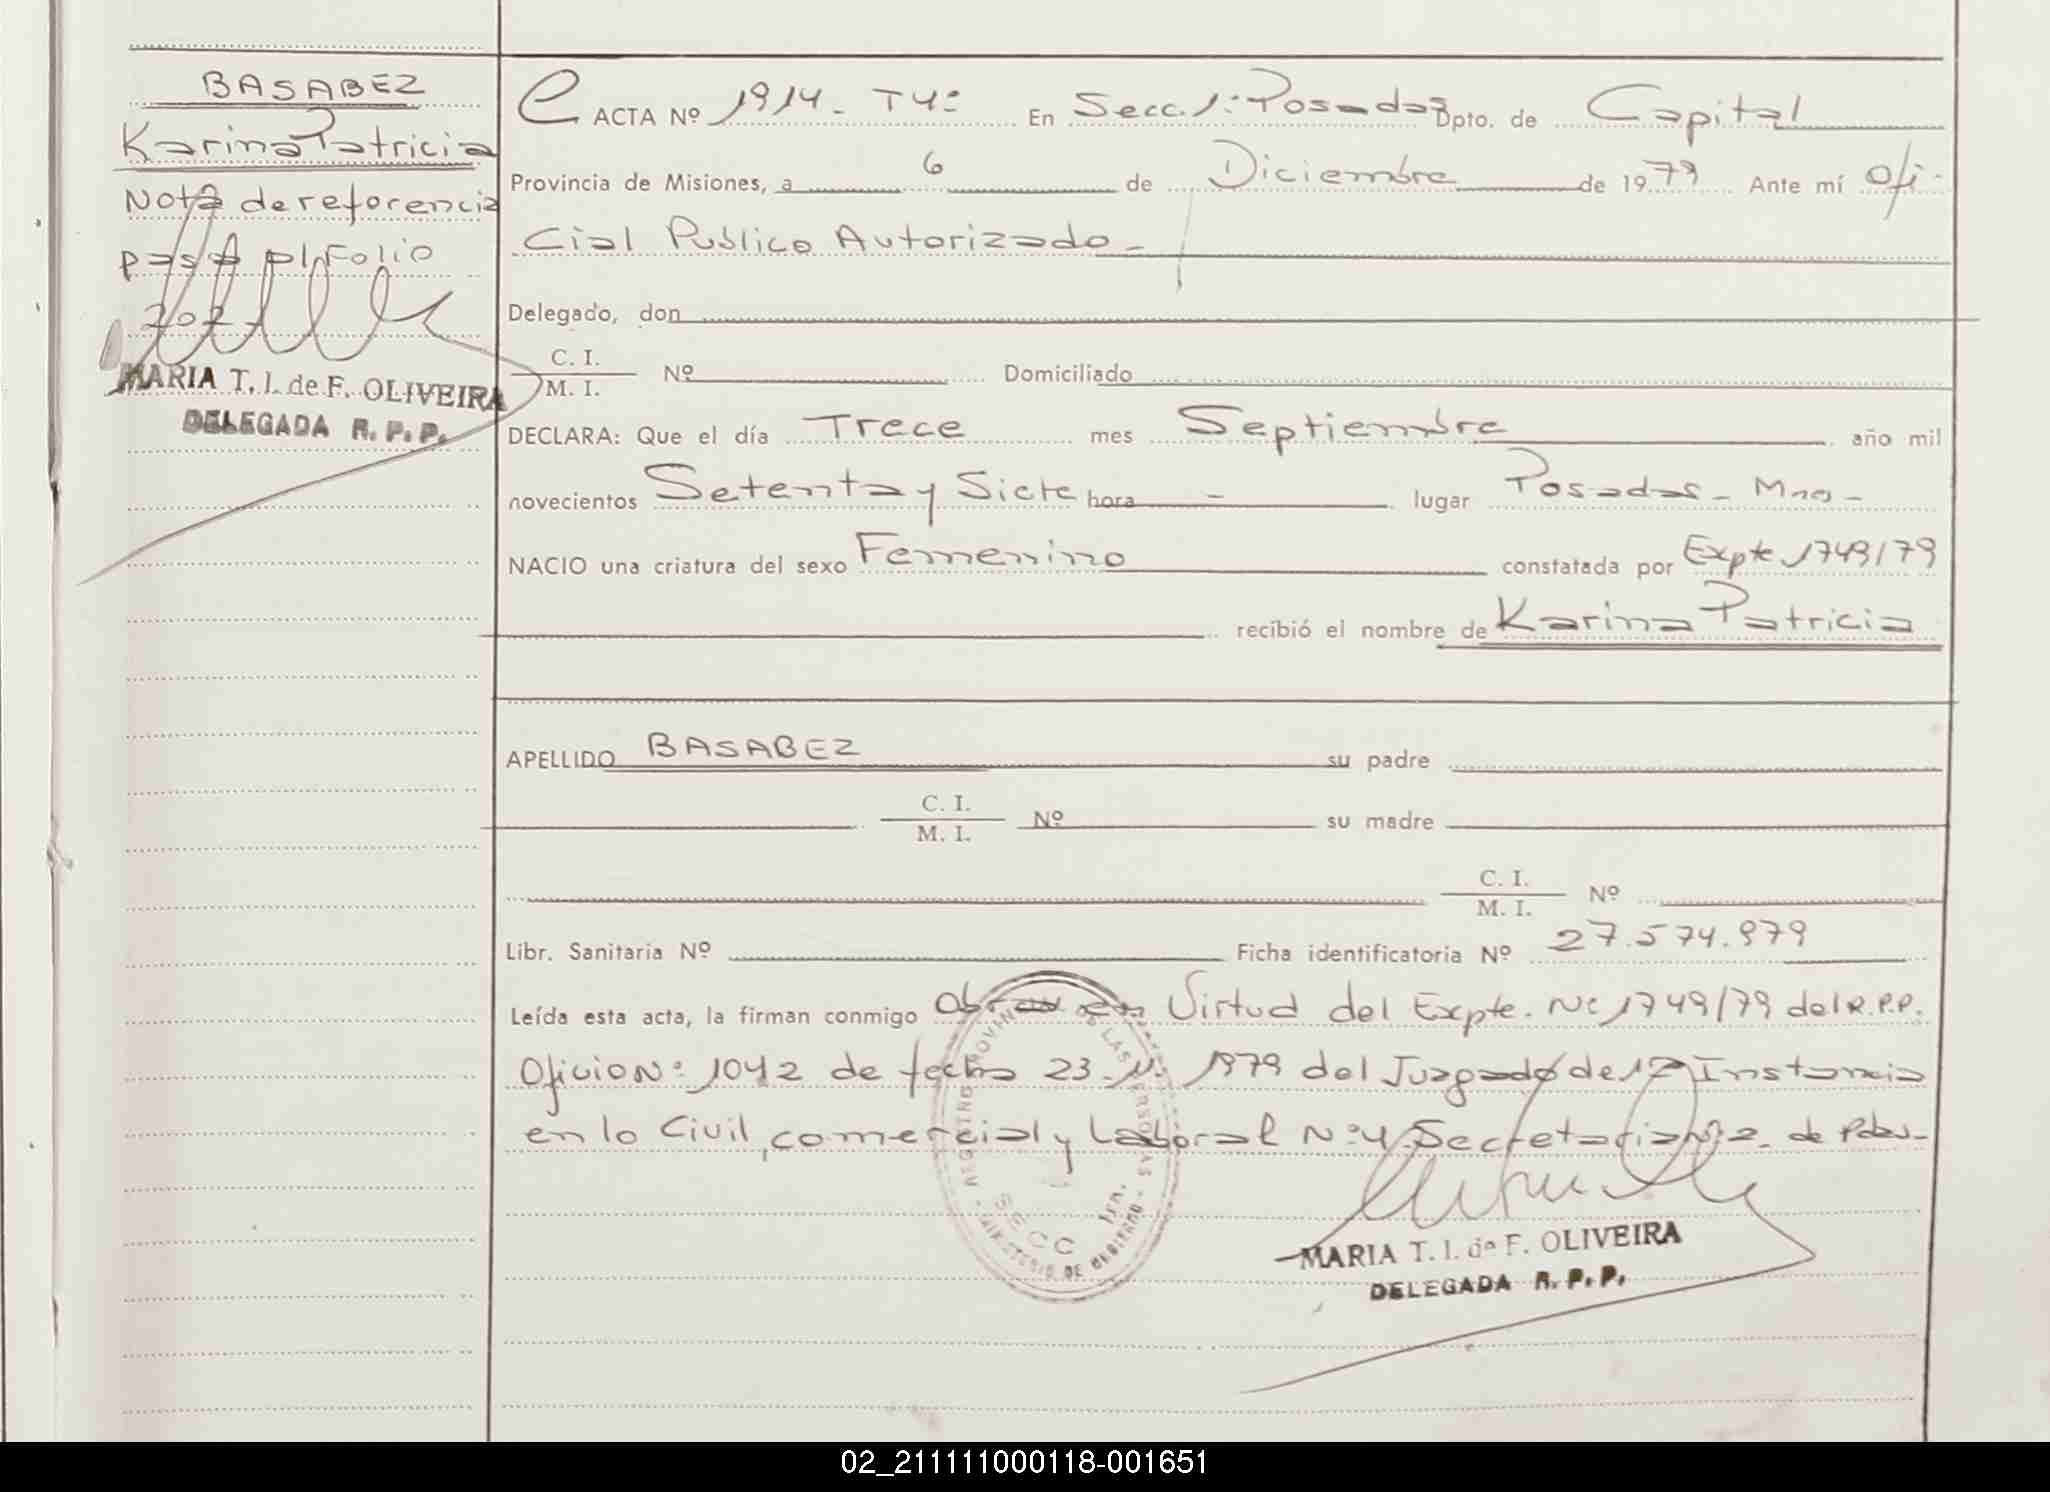 BASABEZ
Karina Patricia
Nota de referencia
pasa al Folio
202
MARIA T. I. de F. OLIVEIRA
DELEGADA R. P. P.
ACTA Nº 1914 - Tº 4º En Secc. 1ª Posadas Dpto. de Capital
Provincia de Misiones, a 6 de Diciembre de 1979 Ante mí Ofi-
cial Publico Autorizado -
Delegado, don
C. I.
M. I. Nº Domiciliado
DECLARA: Que el día Trece mes Septiembre año mil
novecientos Setenta y Siete hora - lugar Posadas - Mnes -
NACIO una criatura del sexo Femenino constatada por Expte 1749/79
recibió el nombre de Karina Patricia
APELLIDO BASABEZ su padre
C. I.
M. I. Nº su madre
C. I.
M. I. Nº
Libr. Sanitaria Nº Ficha identificatoria Nº 27.574.979
Leída esta acta, la firman conmigo Obran en Virtud del Expte. Nº 1749/79 del R.P.P.
Oficio Nº 1042 de fecha 23-11-1979 del Juzgado de 1ª Instancia
en lo Civil, comercial y Laboral Nº 4 Secretaria Nº 2 de Pdas -
REGISTRO PROVINCIAL DE LAS PERSONAS
SECC 1ra.
MINISTERIO DE GOBIERNO
MARIA T. I. de F. OLIVEIRA
DELEGADA R. P. P.
02_211111000118-001651